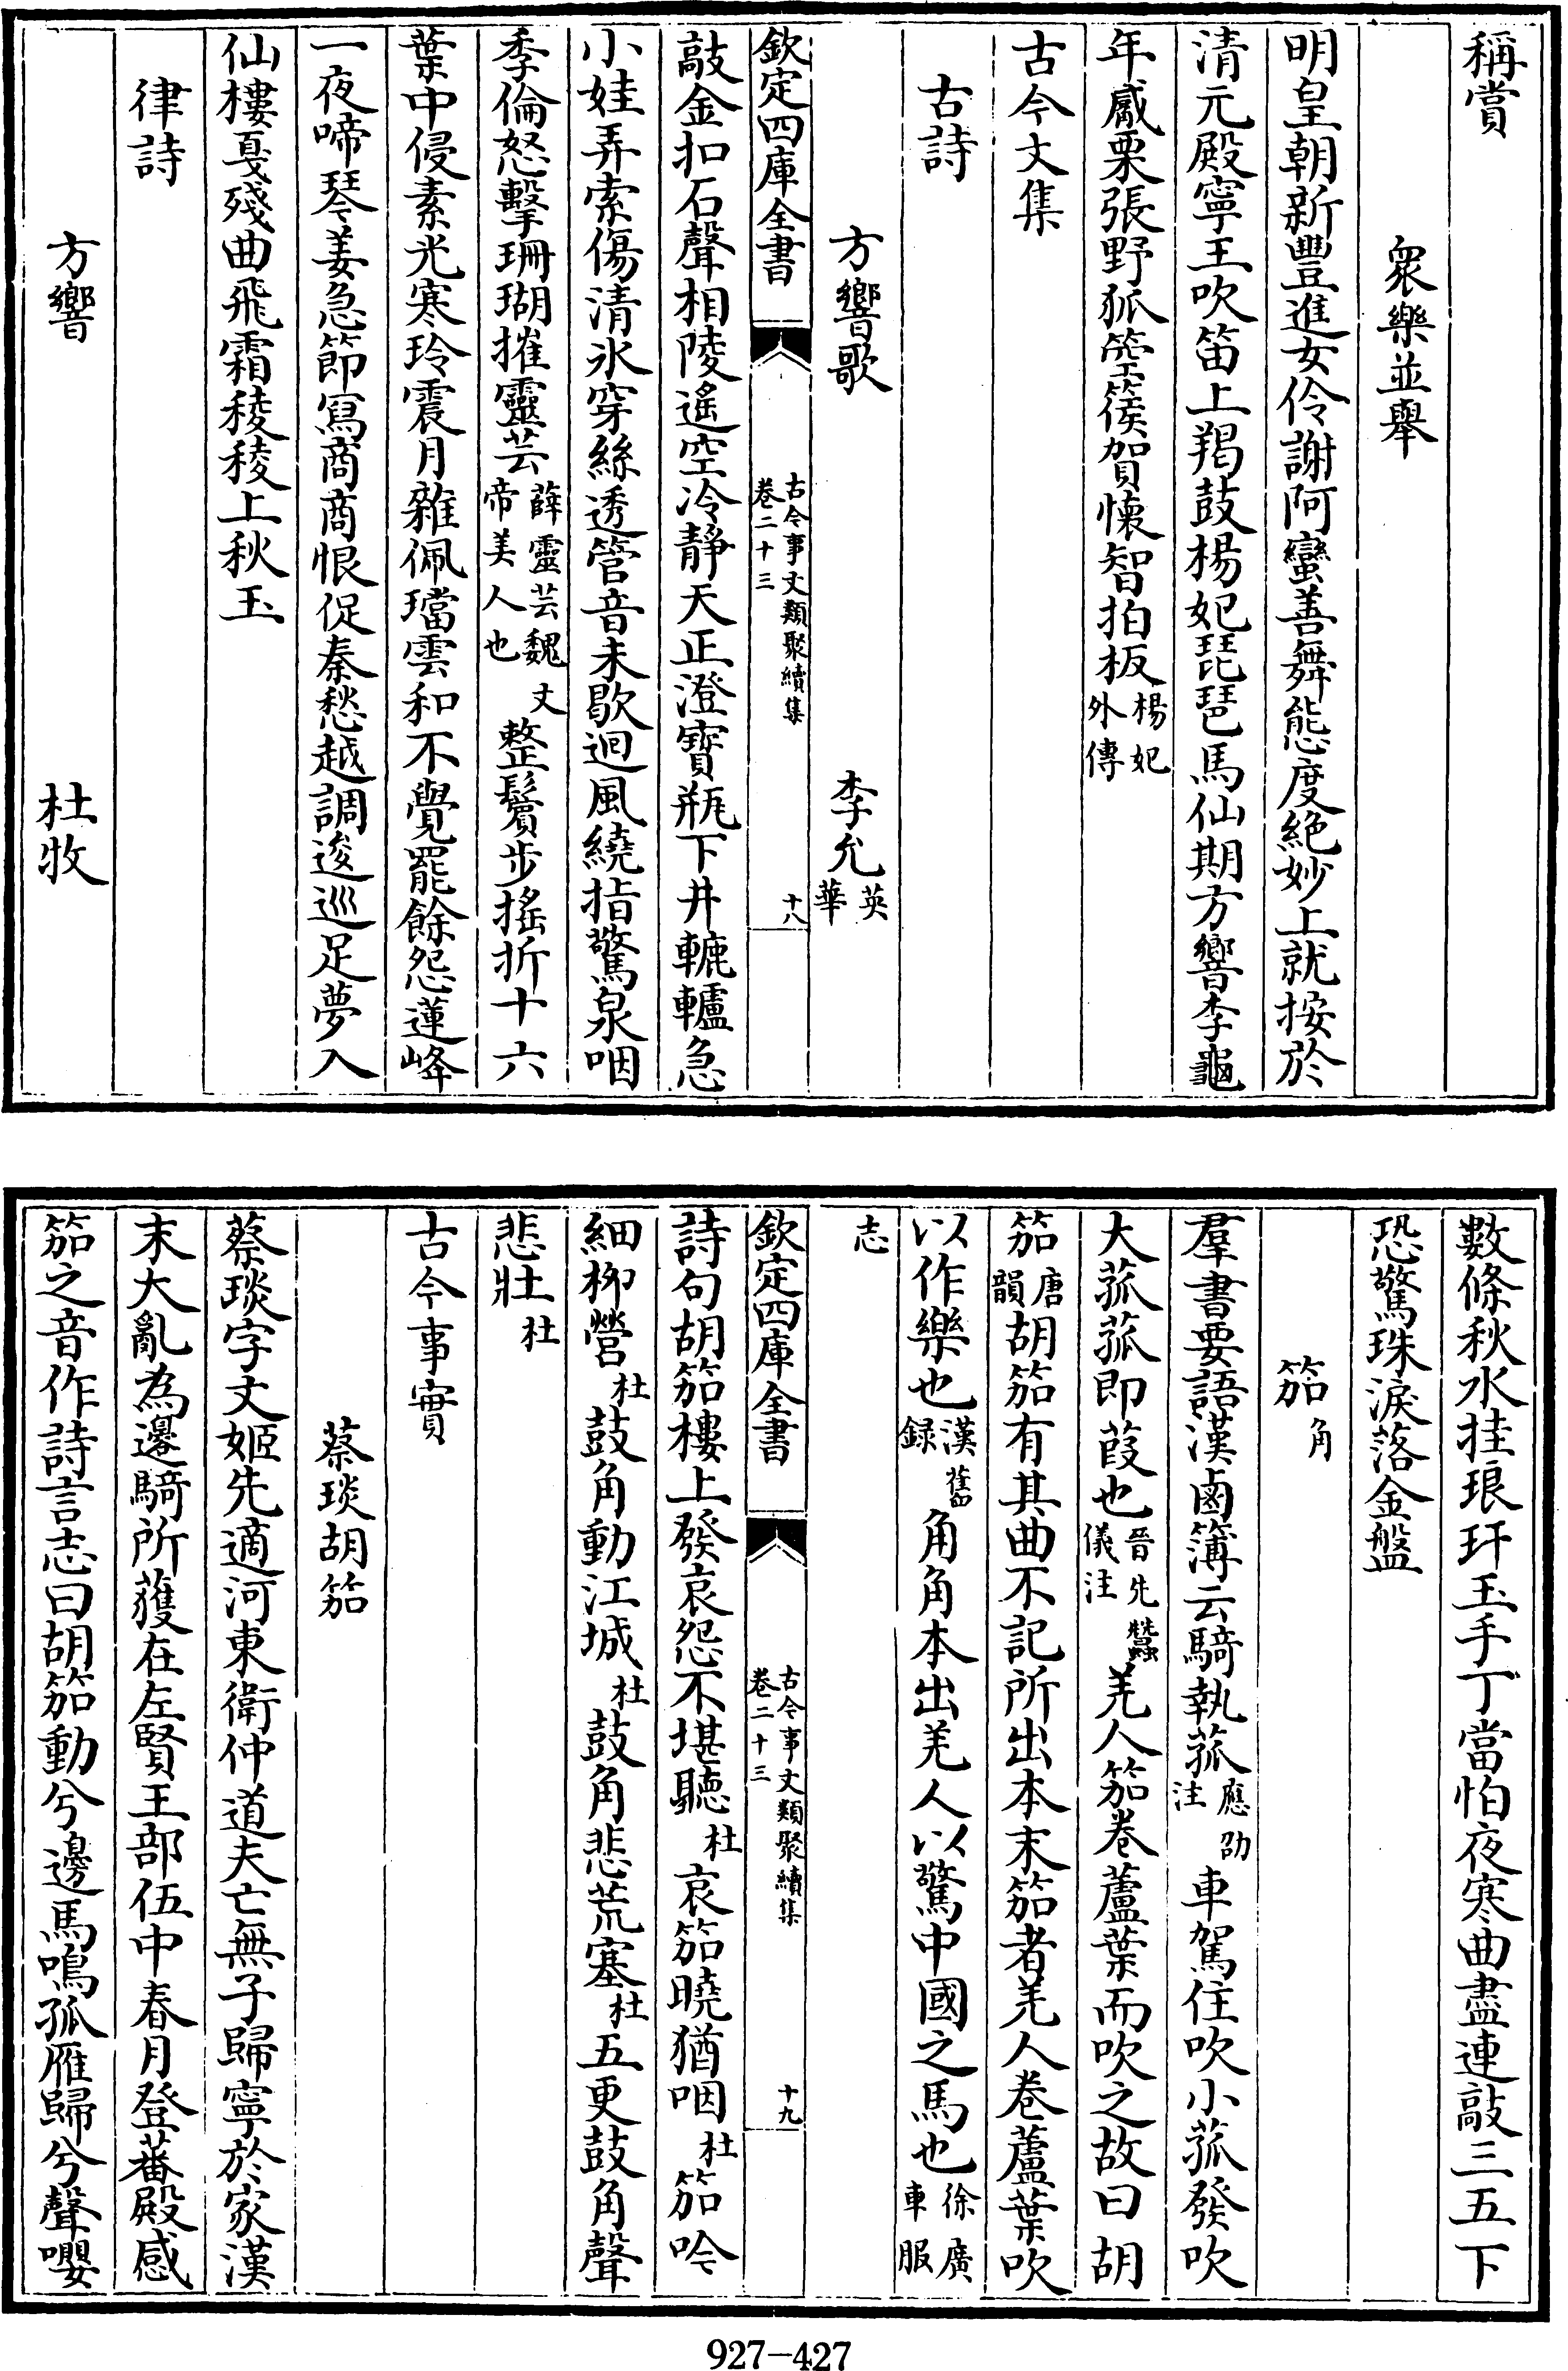 稱賞
衆樂並舉
明皇朝新豐進女伶謝阿蠻善舞態度絶妙上就按於
清元殿寧王吹笛上羯鼓楊妃琵琶馬仙期方響李龜
年觱栗張野狐箜篌賀懷智拍板楊妃外傳
古今文集
古詩
方響歌 李允英華
欽定四庫全書 古今事文類聚續集卷二十三 十八
敲金扣石聲相陵遙空冷靜天正澄寳瓶下井轆轤急
小娃弄索傷清氷穿絲透管音未歇迴風繞指驚泉咽
季倫怒擊珊瑚摧靈芸薛靈芸魏文帝美人也整鬢步搖折十六
葉中侵素光寒玲震月雜佩璫雲和不覺罷餘怨蓮峰
一夜啼琴姜急節冩商商恨促秦愁越調逡巡足夢入
仙樓戛殘曲飛霜稜稜上秋玉
律詩
方響 杜牧
數條秋水挂琅玕玉手丁當怕夜寒曲盡連敲三五下
恐驚珠淚落金盤
笳角
羣書要語漢鹵簿云騎執菰應劭注車駕住吹小菰發吹
大菰菰即葭也晉先蠶儀注羌人笳卷蘆葉而吹之故曰胡
笳唐韻胡笳有其曲不記所出本末笳者羌人卷蘆葉吹
以作樂也漢舊録角角本出羌人以驚中國之馬也徐廣車服
志
欽定四庫全書 古今事文類聚續集卷二十三 十九
詩句胡笳樓上發哀怨不堪聽杜哀笳曉猶咽杜笳吟
細柳營杜鼓角動江城杜鼓角悲荒塞杜五更鼓角聲
悲壯杜
古今事實
蔡琰胡笳
蔡琰字文姬先適河東衛仲道夫亡無子歸寧於家漢
末大亂為邊騎所獲在左賢王部伍中春月登蕃殿感
笳之音作詩言志曰胡笳動兮邊馬鳴孤雁歸兮聲嚶
927-427